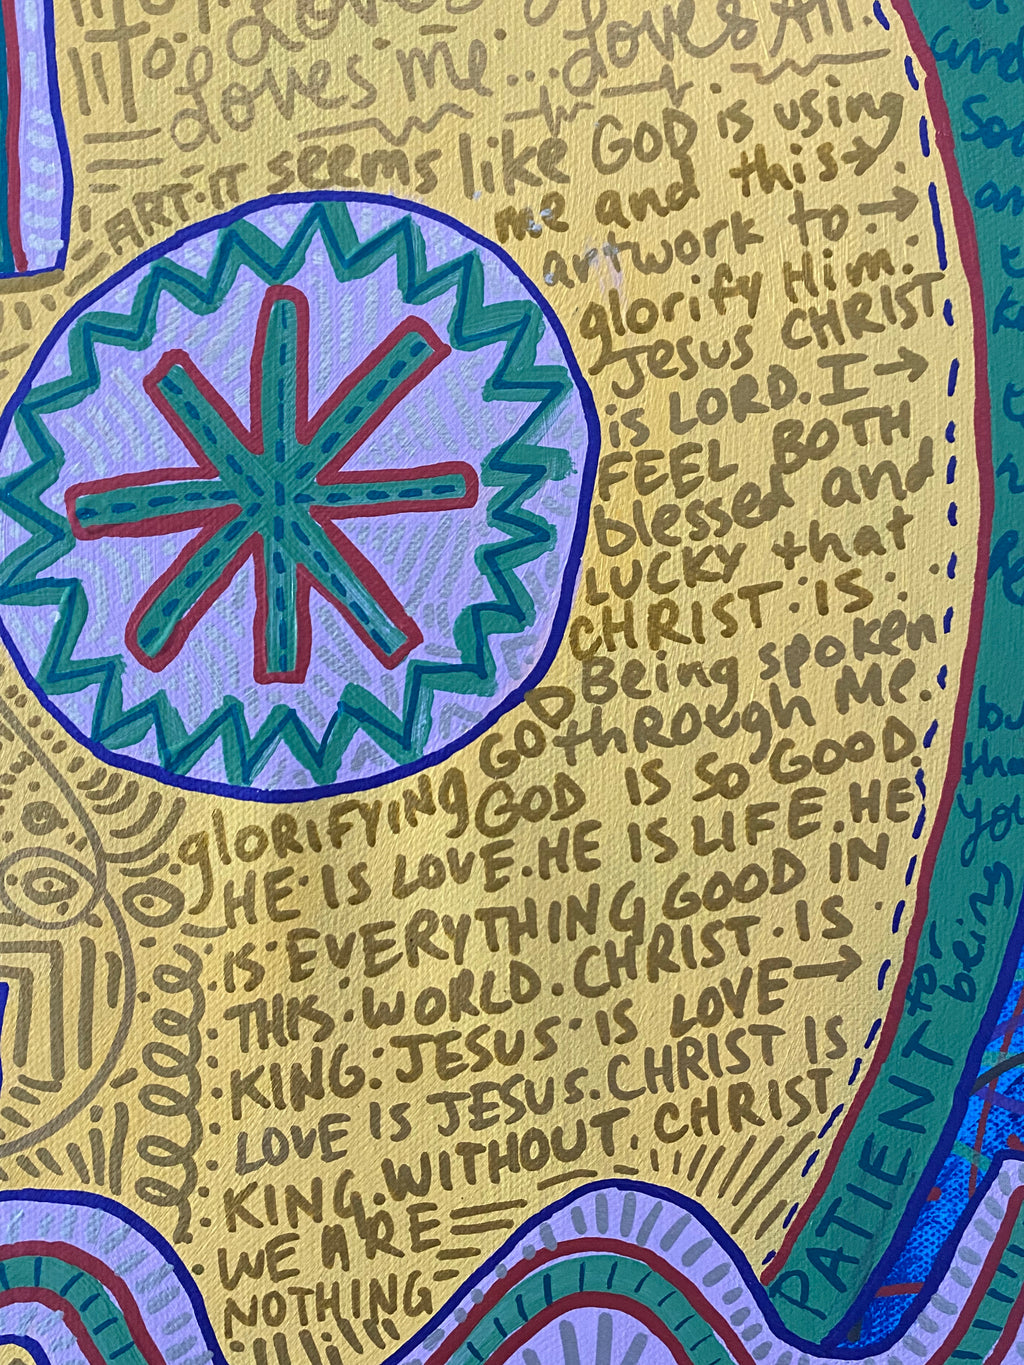 To
Loves
Loves me... Loves All.
ART. IT seems like GOD is using
me and this →
artwork to →
glorify Him.
Jesus CHRIST
is LORD. I →
FEEL BOTH
blessed and
LUCKY that
CHRIST. IS.
Being spoken
through Me.
glorifying GOD
GOD IS SO GOOD.
HE IS LOVE. HE IS LIFE. HE
IS EVERYTHING GOOD IN
THIS. WORLD. CHRIST. IS
KING. JESUS IS LOVE →
LOVE IS JESUS. CHRIST IS
KING. WITHOUT. CHRIST
WE ARE
NOTHING
and
being
for
PATIENT